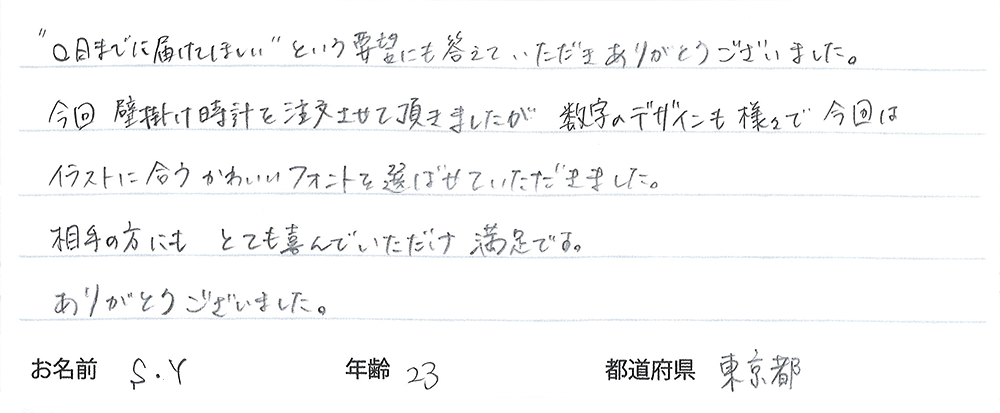 "〇日までに届けてほしい"という要望にも答えていただきありがとうございました。
今回 壁掛け時計を注文させて頂きましたが 数字のデザインも様々で 今回は
イラストに合うかわいいフォントを選ばせていただだきました。
相手の方にも とても喜んでいただけ 満足です。
ありがとうございました。
お名前 S.Y 年齢 23 都道府県 東京都